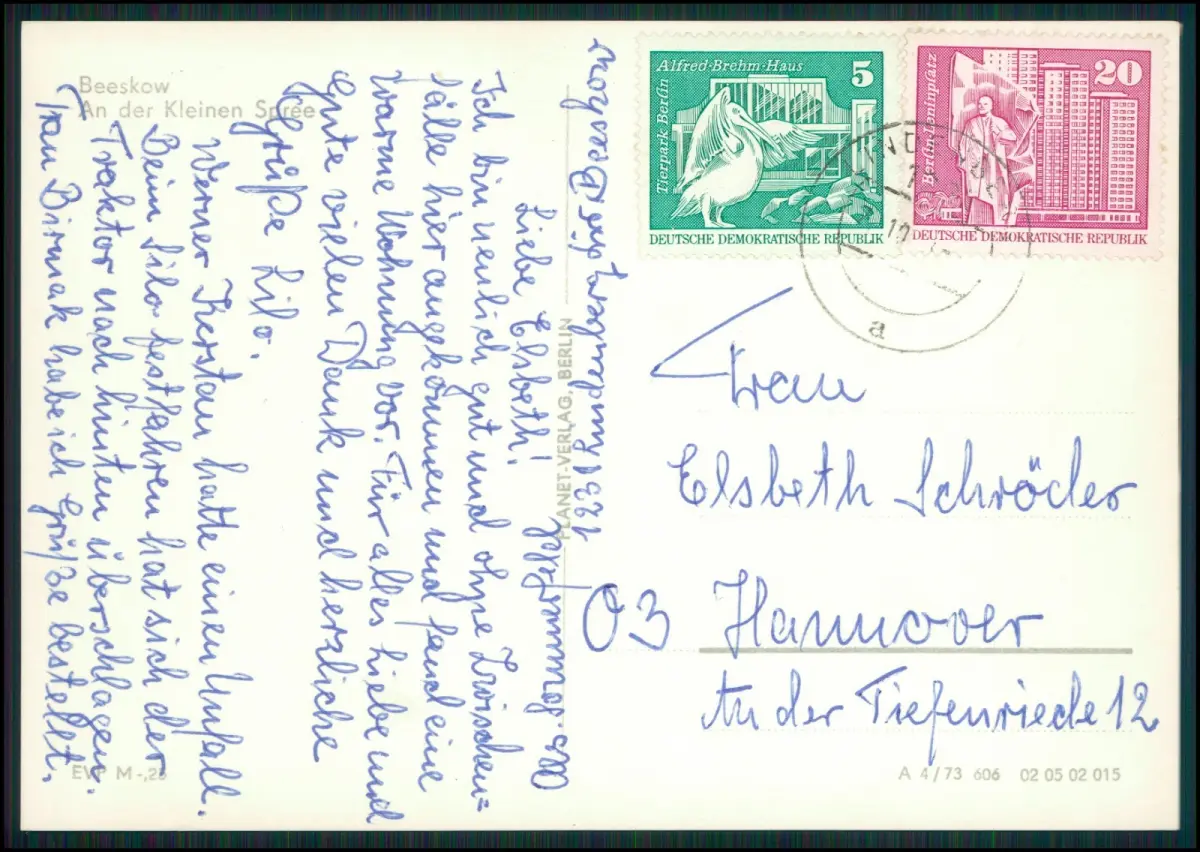 Beeskow
An der Kleinen Spree
Liebe Elsbeth!
Ich bin neulich gut und ohne Zwischen=
fälle hier angekommen und fand eine
warme Wohnung vor. Für alles Liebe und
Gute vielen Dank und herzliche
Grüße Lilo.
Werner Kerstan hatte einen Unfall.
Beim Silo festfahren hat sich der
Traktor nach hinten überschlagen.
Frau Birnak habe ich Grüße bestellt.
EVP M -,25
PLANET-VERLAG, BERLIN
1231 Lindenberg
Alfred-Brehm-Haus
5
Tierpark Berlin
DEUTSCHE DEMOKRATISCHE REPUBLIK
20
Berlin-Leninplatz
DEUTSCHE DEMOKRATISCHE REPUBLIK
a
Frau
Elsbeth Schröder
03 Hannover
An der Tiefenriede 12
A 4/73 606 02 05 02 015